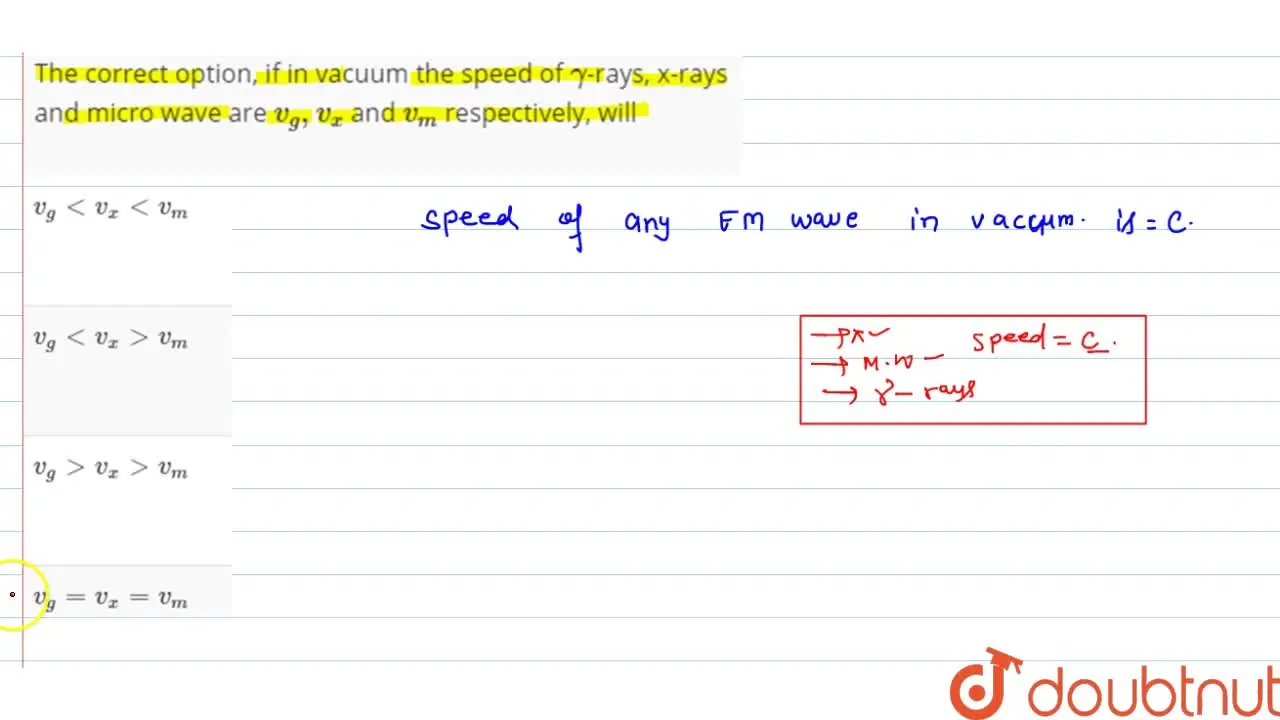 The correct option, if in vacuum the speed of γ-rays, x-rays
and micro wave are v_g, v_x and v_m respectively, will
v_g < v_x < v_m
speed of any EM wave in vaccum. is = C.
v_g < v_x > v_m
→ x ✓
speed = C.
→ M.W –
→ γ- rays
v_g > v_x > v_m
v_g = v_x = v_m
doubtnut